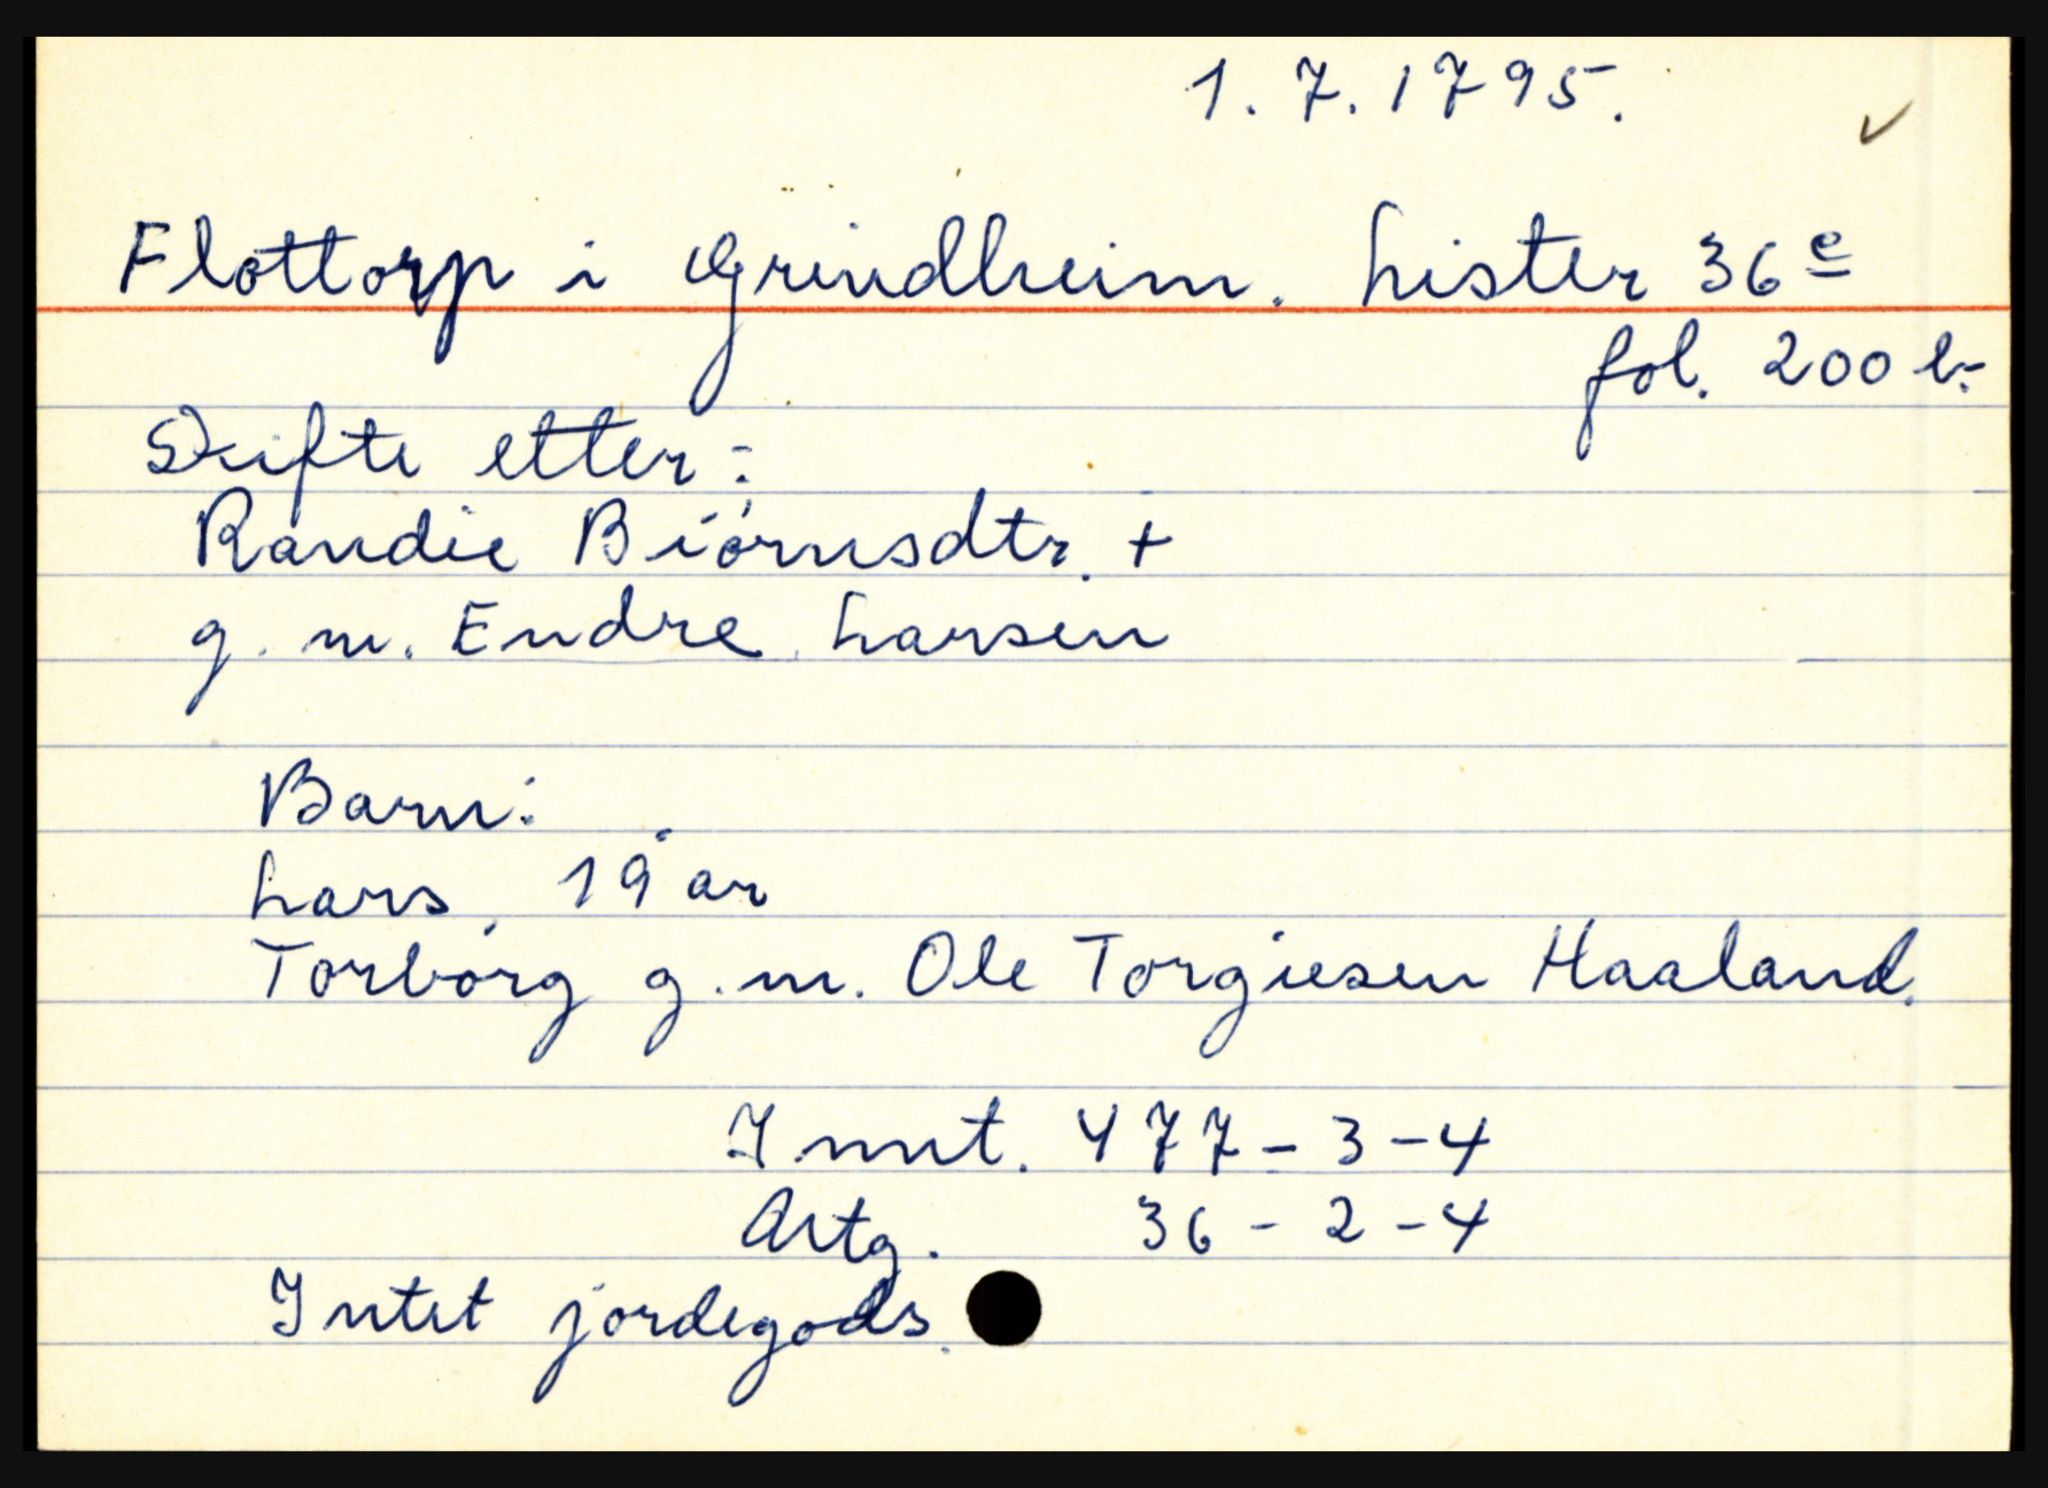 1.7.1795. ✓
Flottorp i Grindheim. Lister 36e
fol. 200 b.
Skifte etter:
Randie Biórnsdtr. +
g. m. Endre Larsen
Barn:
Lars 19 år
Torbórg g. m. Ole Torgiesen Haaland.
I mnt. 477-3-4
Artg. 36-2-4
Intet jordegods.